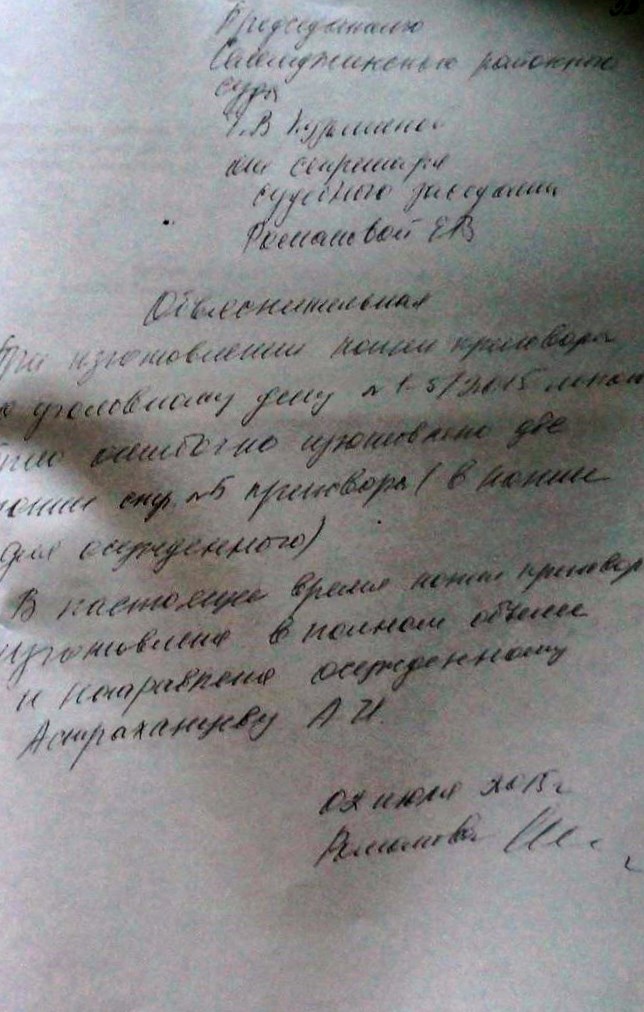 Председателю
Селемджинского районного
суда
от секретаря
судебного заседания
Романовой ЕВ
Объяснительная
При изготовлении копии приговора
по уголовному делу № 1-5/2015
было ошибочно изготовлено две
копии стр. №5 приговора (в копии
для осужденного)
В настоящее время копия приговор
изготовлена в полном объеме
и направлена осужденному
Астраханцеву А.И.
02 июля 2015г
Романова